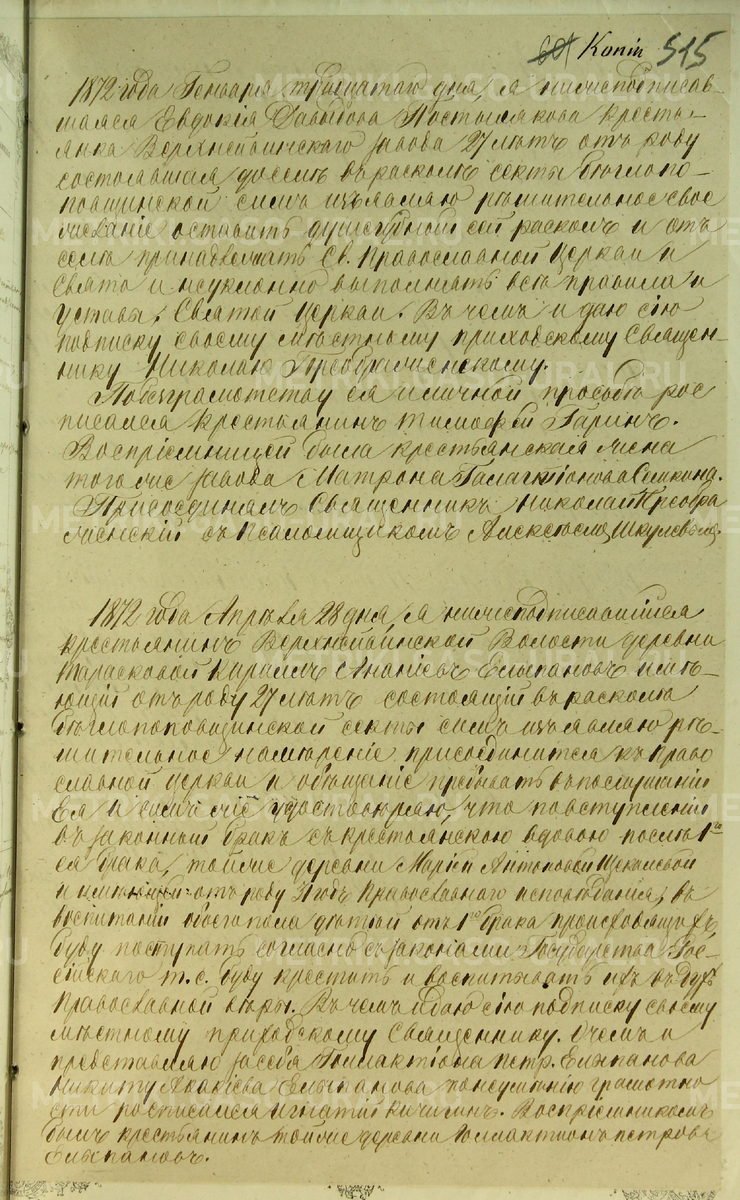 Копiи 515
1872 года Генваря тридцатаго дня, я нижеподписав-
шаяся Евдокiя Давыдова Постылякова кресть-
янка Верхнейвинскаго завода 27 лѣтъ отъ роду
состоявшая доселѣ въ расколѣ секты бѣглопо-
повщинской симъ изъявляю рѣшительное свое
желанiе оставить душегубный сей расколъ и отъ
селѣ принадлежать Св. Православной Церкви и
свято и неуклонно выполнять всѣ правила и
уставы, Святой Церкви. Въ чемъ и даю сiю
подписку своему мѣстному приходскому Священ-
нику Николаю Преображенскому.
По безграмотству ея и личной просьбѣ рос
писался крестьянинъ Тимофей Гаринъ.
Воспрiемницей была крестьянская жена
того же завода Матрона Галактiонова Селкина.
Присоединялъ Священникъ Николай Преобра
женскiй съ Псаломщикомъ Алексѣемъ
1872 года Апрѣля 28 дня я нижеподписавшiйся
крестьянинъ Верхнейвинской Волости деревни
Тарасковой Карпъ Ананiевъ Елыпановъ имѣ-
ющiй отъ роду 27 лѣтъ состоящiй въ расколѣ
бѣглопоповщинской секты симъ изъявляю рѣ-
шительное намѣренiе присоединится къ Право
славной церкви и обѣщанiе пребывать въ послушанiи
Ея и симъ же удостовѣряю, что по вступленiи
въ законный бракъ съ крестьянскою вдовою послѣ 1го
ея брака, тойже деревни Марiей Антоповой
и имѣющей отъ роду Православнаго исповѣданiя, въ
воспитанiи обоего пола дѣтей отъ брака происходящихъ
буду поступать согласно съ законами Государства Рос-
сiйскаго т.е. буду крестить и воспитывать ихъ въ духѣ
Православной вѣры. Въ чемъ и даю сiю подписку своему
мѣстному приходскому Священнику. О чемъ и
представляю за себя Галактiона Петр. Елыпанова
Никиту Акакiева Елыпанова по неумѣнiю грамотно
сти росписался Игнатiй Кичигинъ. Воспрiемникомъ
былъ крестьянинъ тойже деревни Галактiонъ Петровъ
Елыпановъ.